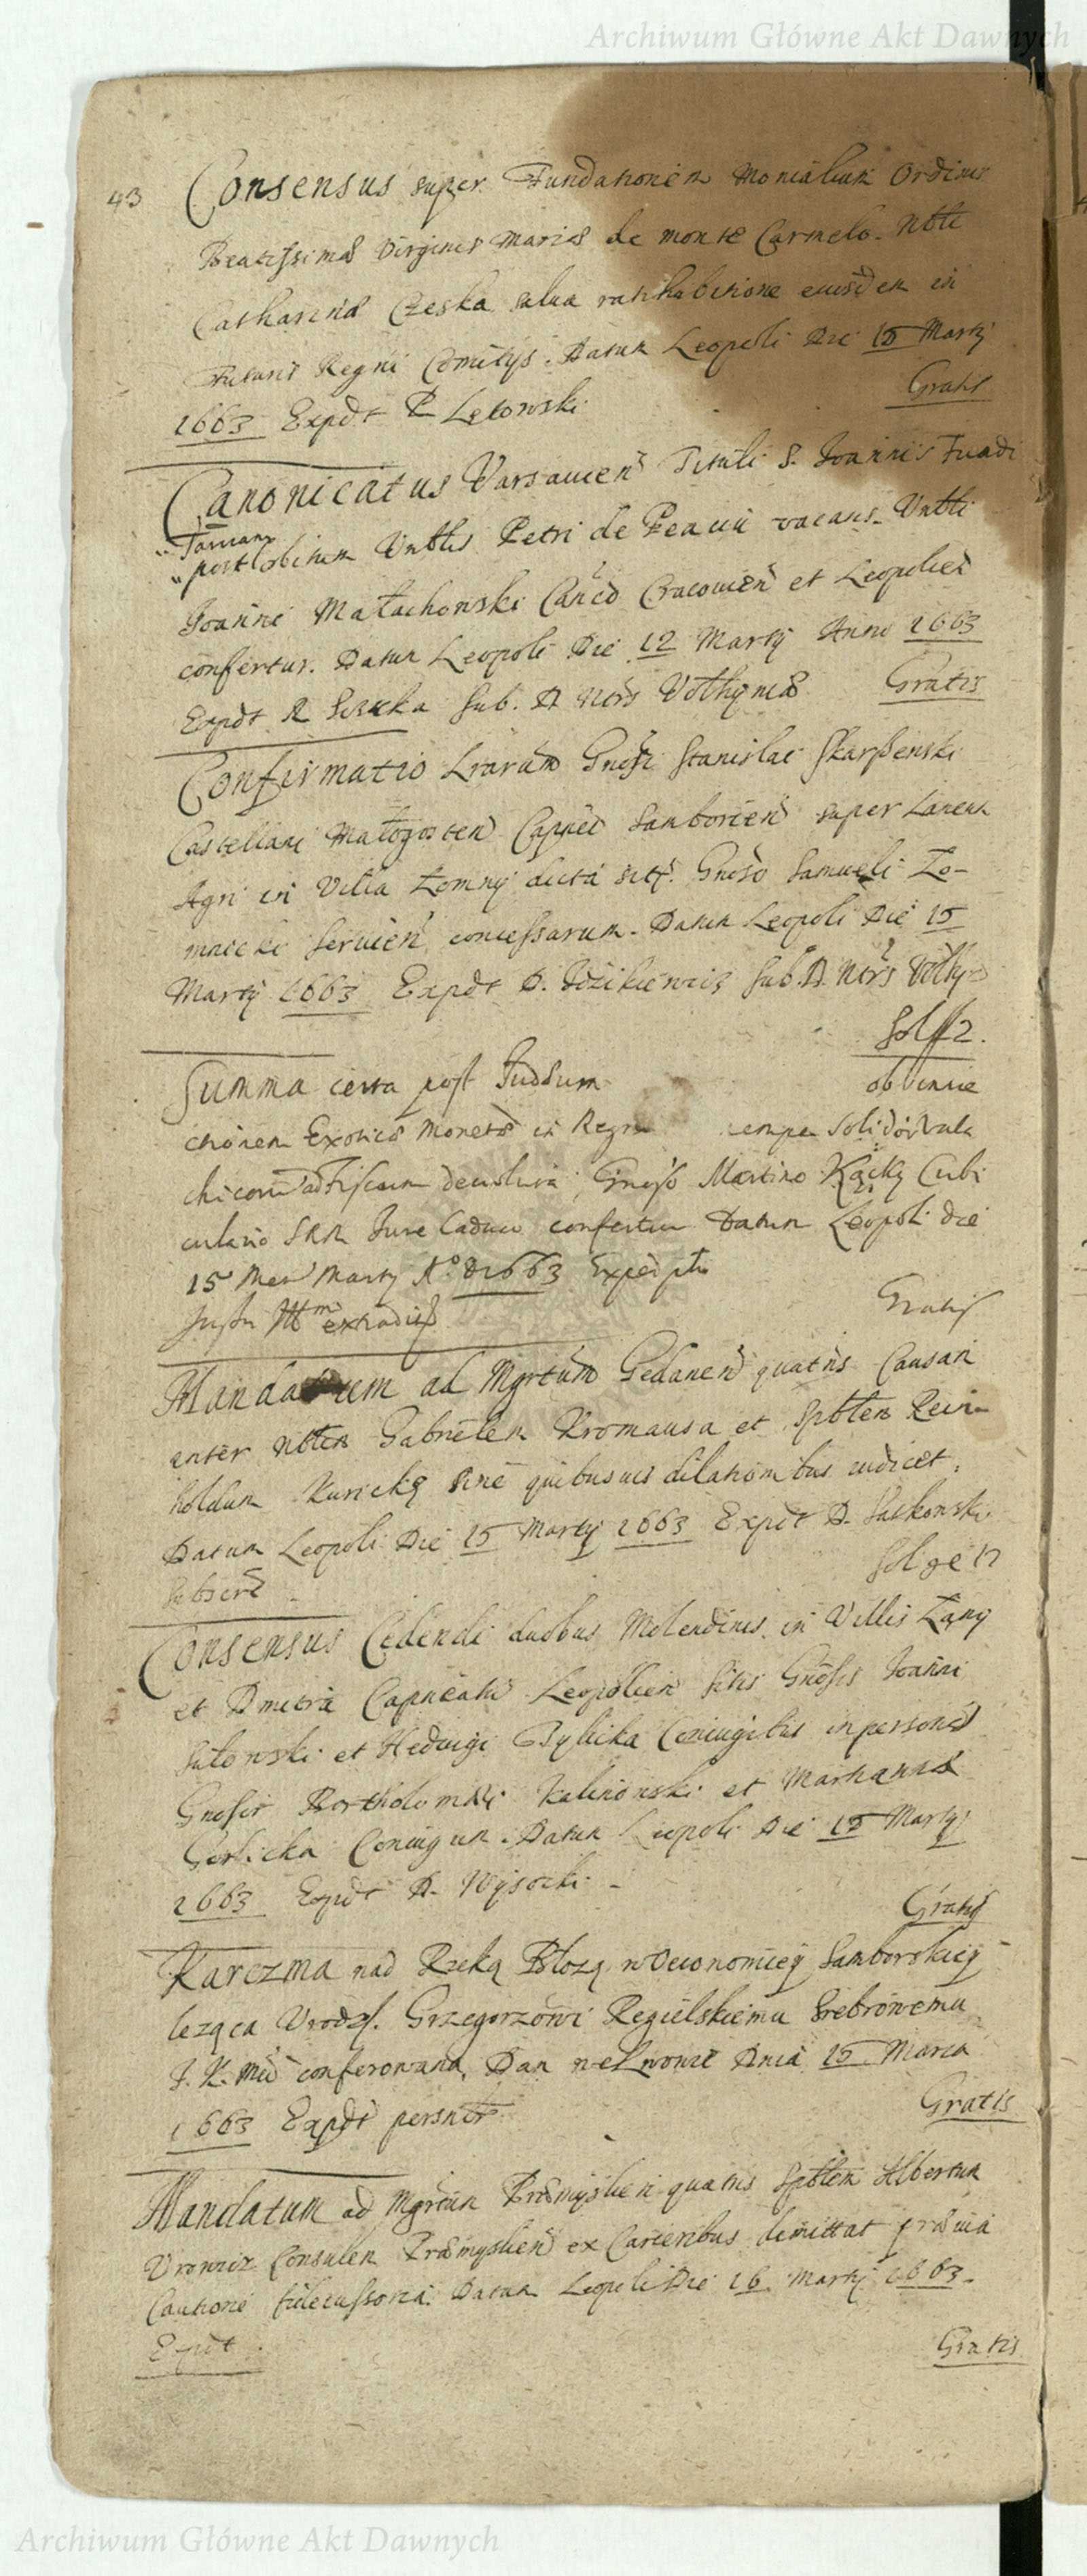 Archiwum Główne Akt Dawnych
43
Consensus super Fundationem Monialium Ordinis
Beatissimae Virginis Mariae de monte Carmelo. Nbli
Catharinae Czeska salva ratihabitione eiusdem in
Futuris Regni Comitijs. Datum Leopoli Die 15 Martij
1663 Expdt P Letowski
Gratis
Canonicatus Varsavien Tituli S. Joannis Fundi
Tarnan
post obitum Vnblis Petri de Peauii vacans. Vnbli
Joanni Małachowski Canco Cracovien et Leopolien
confertur. Datum Leopoli Die 12 Martij Anno 1663
Expdt R Seruka Sub. R Ntrs Volhyniae
Gratis
Confirmatio Lrarum Gnosi Stanislai Skarszewski
Castellani Małogosten Capnei Samborien super Laneum
Agri in Villa Łomny dicta sit. Gnoso Samueli Ło-
mnicki servien concessarum. Datum Leopoli Die 15
Martij 1663 Expdt D. Idzikiewicz Sub. R. Ntrs Volhy
Sol ff 2.
Summa certa post Iudsum
obvenie
ctionem Exoticae Monetae in Regn empe Solidor Vala
chicoru ad Fiscum devoluta, Gnoso Martino Kącky Cubi
culario SRM Jure Caduco confertur Datum Leopoli die
15 Men Martij Ao D 1663 Expeditu
Jussu extradit
Gratis
Mandatum ad Mgrtum Gedanen quatns Causam
inter Nblem Gabrielem Kromausa et Spblem Rein-
holdum Kuricky sine quibusuis dilationibus iudicet.
Datum Leopoli Die 15 Martij 1663 Expdt D. Satkowski
Subscre
Sol ge 17
Consensus Cedendi duobus Molendinis in Villis Łany
et Dmitrie Capneatu Leopolien sitis Gnosis Joanni
Sulowski et Hedvigi Bylicka Coniugibus in personas
Gnosir Bartholomaei Kalinowski et Mariannae
Gorlicka Coniugum. Datum Leopoli Die 15 Martij
1663 Expdt D. Wysocki
Gratis
Karczma nad Rzeką Błozą w Oeconomiey Samborskiey
leząca Vrodz. Grzegorzowi Regielskiemu Srebrnemu
J. K. Mci conferowana, Dan we Lwowie Dnia 15 Marca
1663 Expdt persnltr
Gratis
Mandatum ad Mgrtum Praemyslien quatns Spblem Albertum
Vrowicz Consulem Praemyslien ex Carceribus dimittat praevia
Cautione fideiussoria. Datum Leopoli Die 16 Martij 1663.
Expdt.
Gratis
Archiwum Główne Akt Dawnych